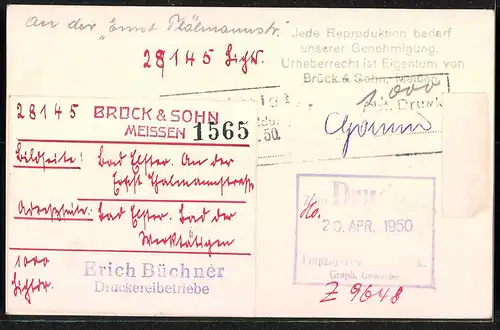 An der „Ernst Thälmannstr."
28145 Lichtr.
Jede Reproduktion bedarf
unserer Genehmigung.
Urheberrecht ist Eigentum von
Brück & Sohn, Meißen
1000
Druck
28145
BRÜCK & SOHN
MEISSEN 1565
Bildseite: Bad Elster. An der
Ernst Thälmannstraße
Adreßseite: Bad Elster. Bad der
Werktätigen
1000
Lichtdr.
Erich Büchner
Druckereibetriebe
20. APR. 1950
Leipzig
Z 9648